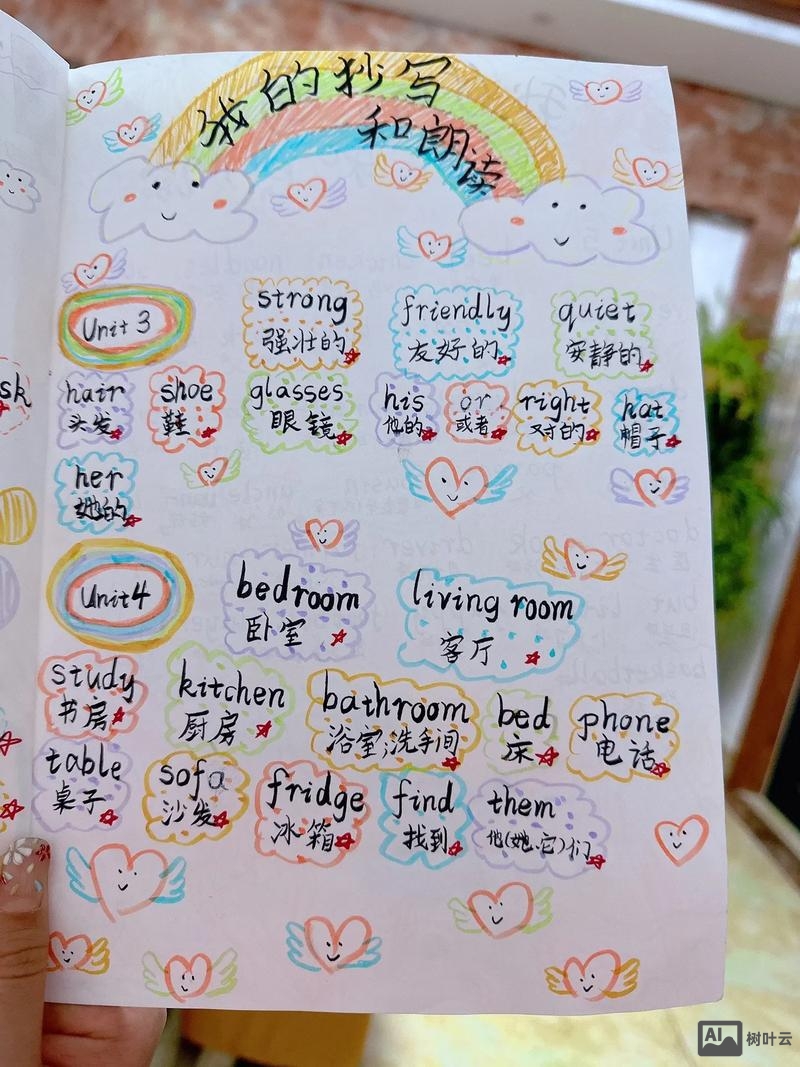 我的抄写
和朗读
Unit 3
strong
强壮的
friendly
友好的
quiet
安静的
hair
头发
shoe
鞋
glasses
眼镜
his
他的
or
或者
right
对的
hat
帽子
her
她的
Unit4
bedroom
卧室
living room
客厅
study
书房
kitchen
厨房
bathroom
浴室;洗手间
bed
床
phone
电话
table
桌子
sofa
沙发
fridge
冰箱
find
找到
them
他(她、它)们
sk
AI 树叶云